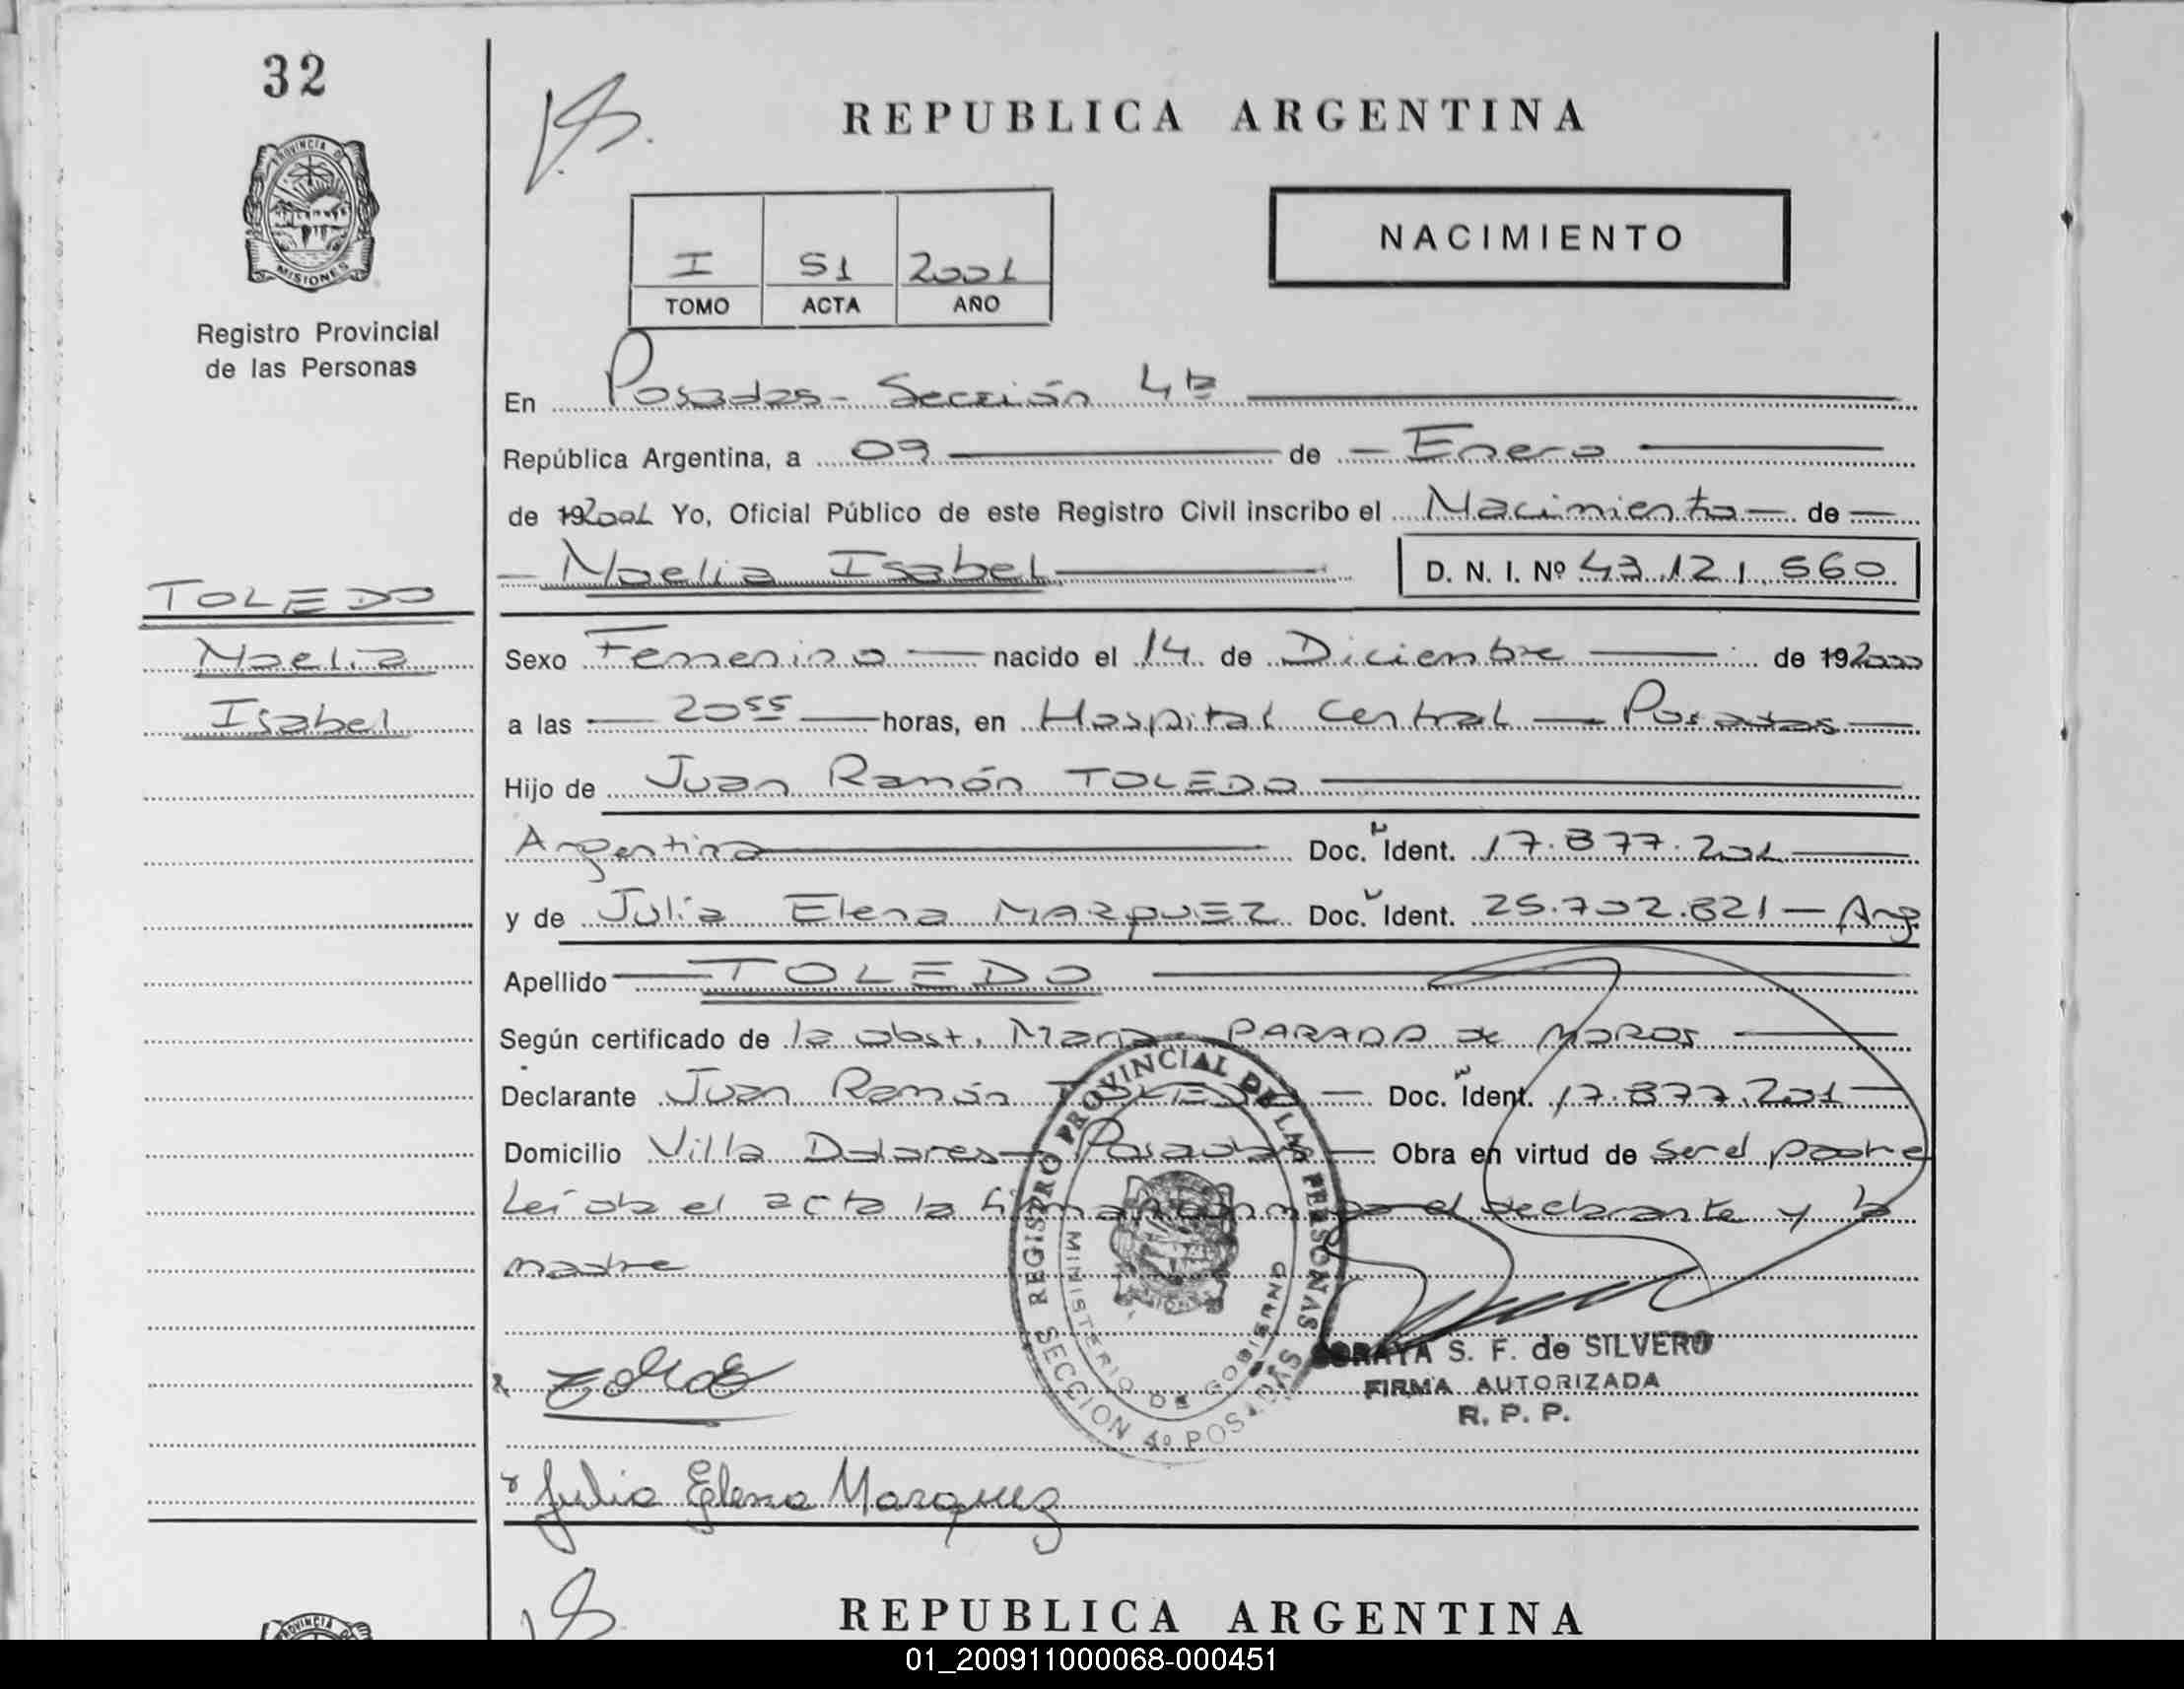 32
PROVINCIA DE
MISIONES
Registro Provincial
de las Personas
TOLEDO
Noelia
Isabel
REPUBLICA ARGENTINA
NACIMIENTO
I 51 2001
TOMO ACTA AÑO
En Posadas - Sección 4ta
República Argentina, a 09 de Enero
de 192001 Yo, Oficial Público de este Registro Civil inscribo el Nacimiento de
Noelia Isabel D. N. I. Nº 43.121.560
Sexo Femenino nacido el 14 de Diciembre de 192000
a las 20 55 horas, en Hospital Central - Posadas
Hijo de Juan Ramón TOLEDO
Argentina Doc. Ident. 17.877.201
y de Julia Elena MARQUEZ Doc. Ident. 25.702.821 - Arg
Apellido TOLEDO
Según certificado de la obst. María PARADA de MOROS
Declarante Juan Ramón TOLEDO Doc. Ident. 17.877.201
Domicilio Villa Dolores - Posadas - Obra en virtud de ser el padre
Leída el acta la firman el declarante y la
madre
REGISTRO PROVINCIAL DE LAS PERSONAS
MINISTERIO DE GOBIERNO
SECCION 4º POSADAS
SORAYA S. F. de SILVERO
FIRMA AUTORIZADA
R. P. P.
Julia Elena Marquez
REPUBLICA ARGENTINA
PROVINCIA
01_200911000068-000451